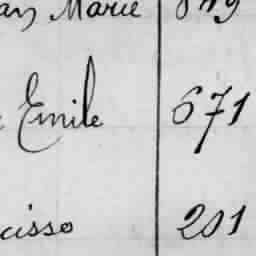 Marie 849
Emile 671
cisso 201